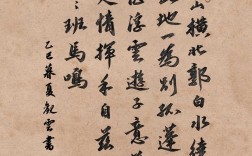 山橫北郭白水繞
此地一為別孤蓬
征浮雲遊子意
人情揮手自茲
〻班馬鳴
乙巳暮夏觀雲書